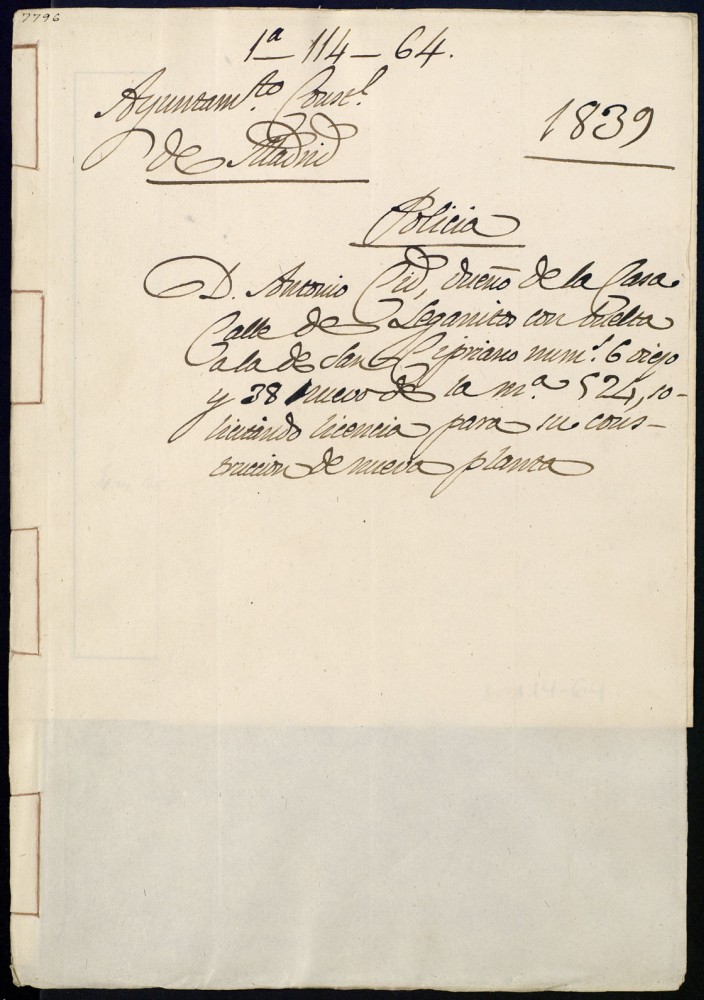 7796
1ª - 114 - 64.
Ayuntam.to Const.l
de Madrid
1839
Policia
D. Antonio Cid, dueño de la Casa
Calle de Leganitos con vuelta
a la de San Cipriano num.º 6 viejo
y 38 nuevo de la m.ª 524, so-
licitando licencia para su cons-
truccion de nueva planta